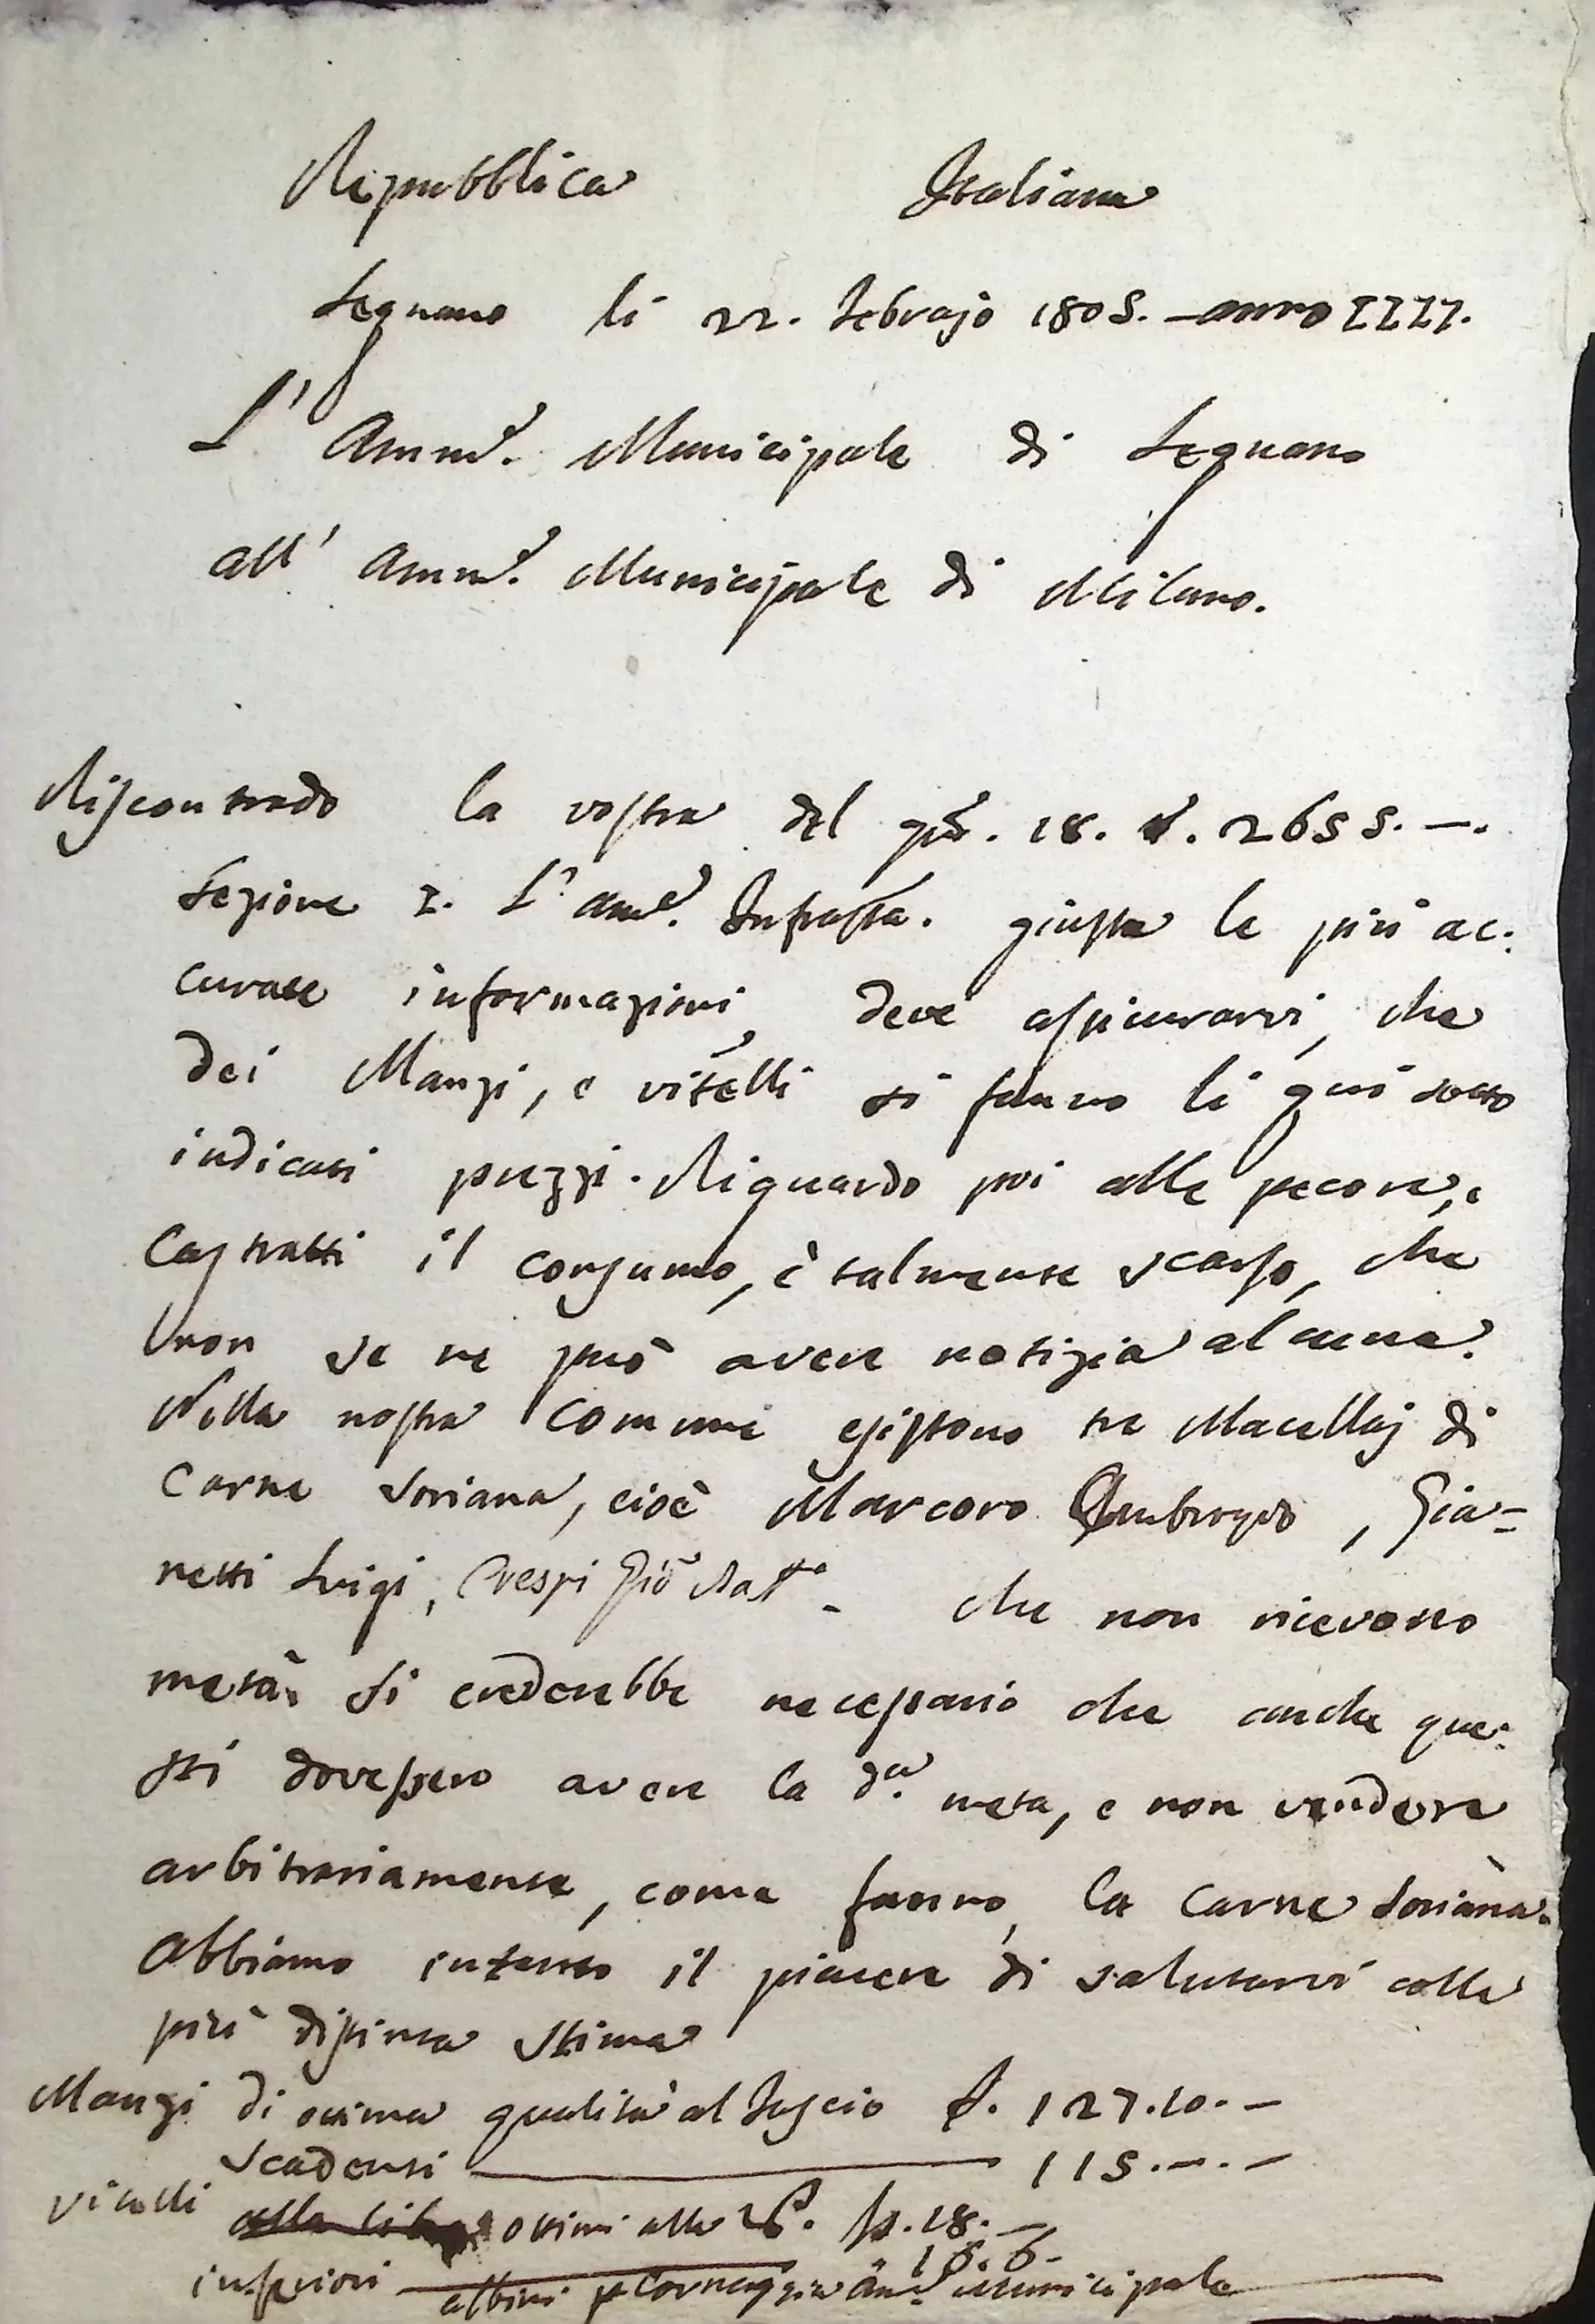 Repubblica Italiana
Legnano li 22. Febrajo 1805. - anno IIII.
L' Amm.e Municipale di Legnano
all' Amm.e Municipale di Milano.
Riscontrado la vostra del 18. N. 2655. -.
Sezione I. L' Am.e Infratta. giusta le più ac:
curate informazioni, deve assicurarvi, che
dei Manzi, e vitelli si fanno li qui sotto
indicati prezzi. Riguardo poi alle pecore, e
Castratti il consumo, è talmente scarso, che
non se ne può avere notizia alcuna.
Nella nostra Comune esistono tre Macellaj di
Carne Soriana, cioè Marcoro Ambrogio, Gia=
netti Luigi, Crespi Gio Bat.a - che non ricevono
metà. Si crederebbe necessario che anche que:
sti dovessero avere la d.a meta, e non vendere
arbitrariamente, come fanno, la Carne Soriana.
Abbiamo intanto il piacere di salutarvi colla
più distinta stima
Manzi di ottima qualità al fascio L. 127.10. -
Scadenti 115. -. -
vitelli alla ottimi alla lb. 18. -
inferiori 16. 6 -
Albini Cornaggia Am.e Municipale